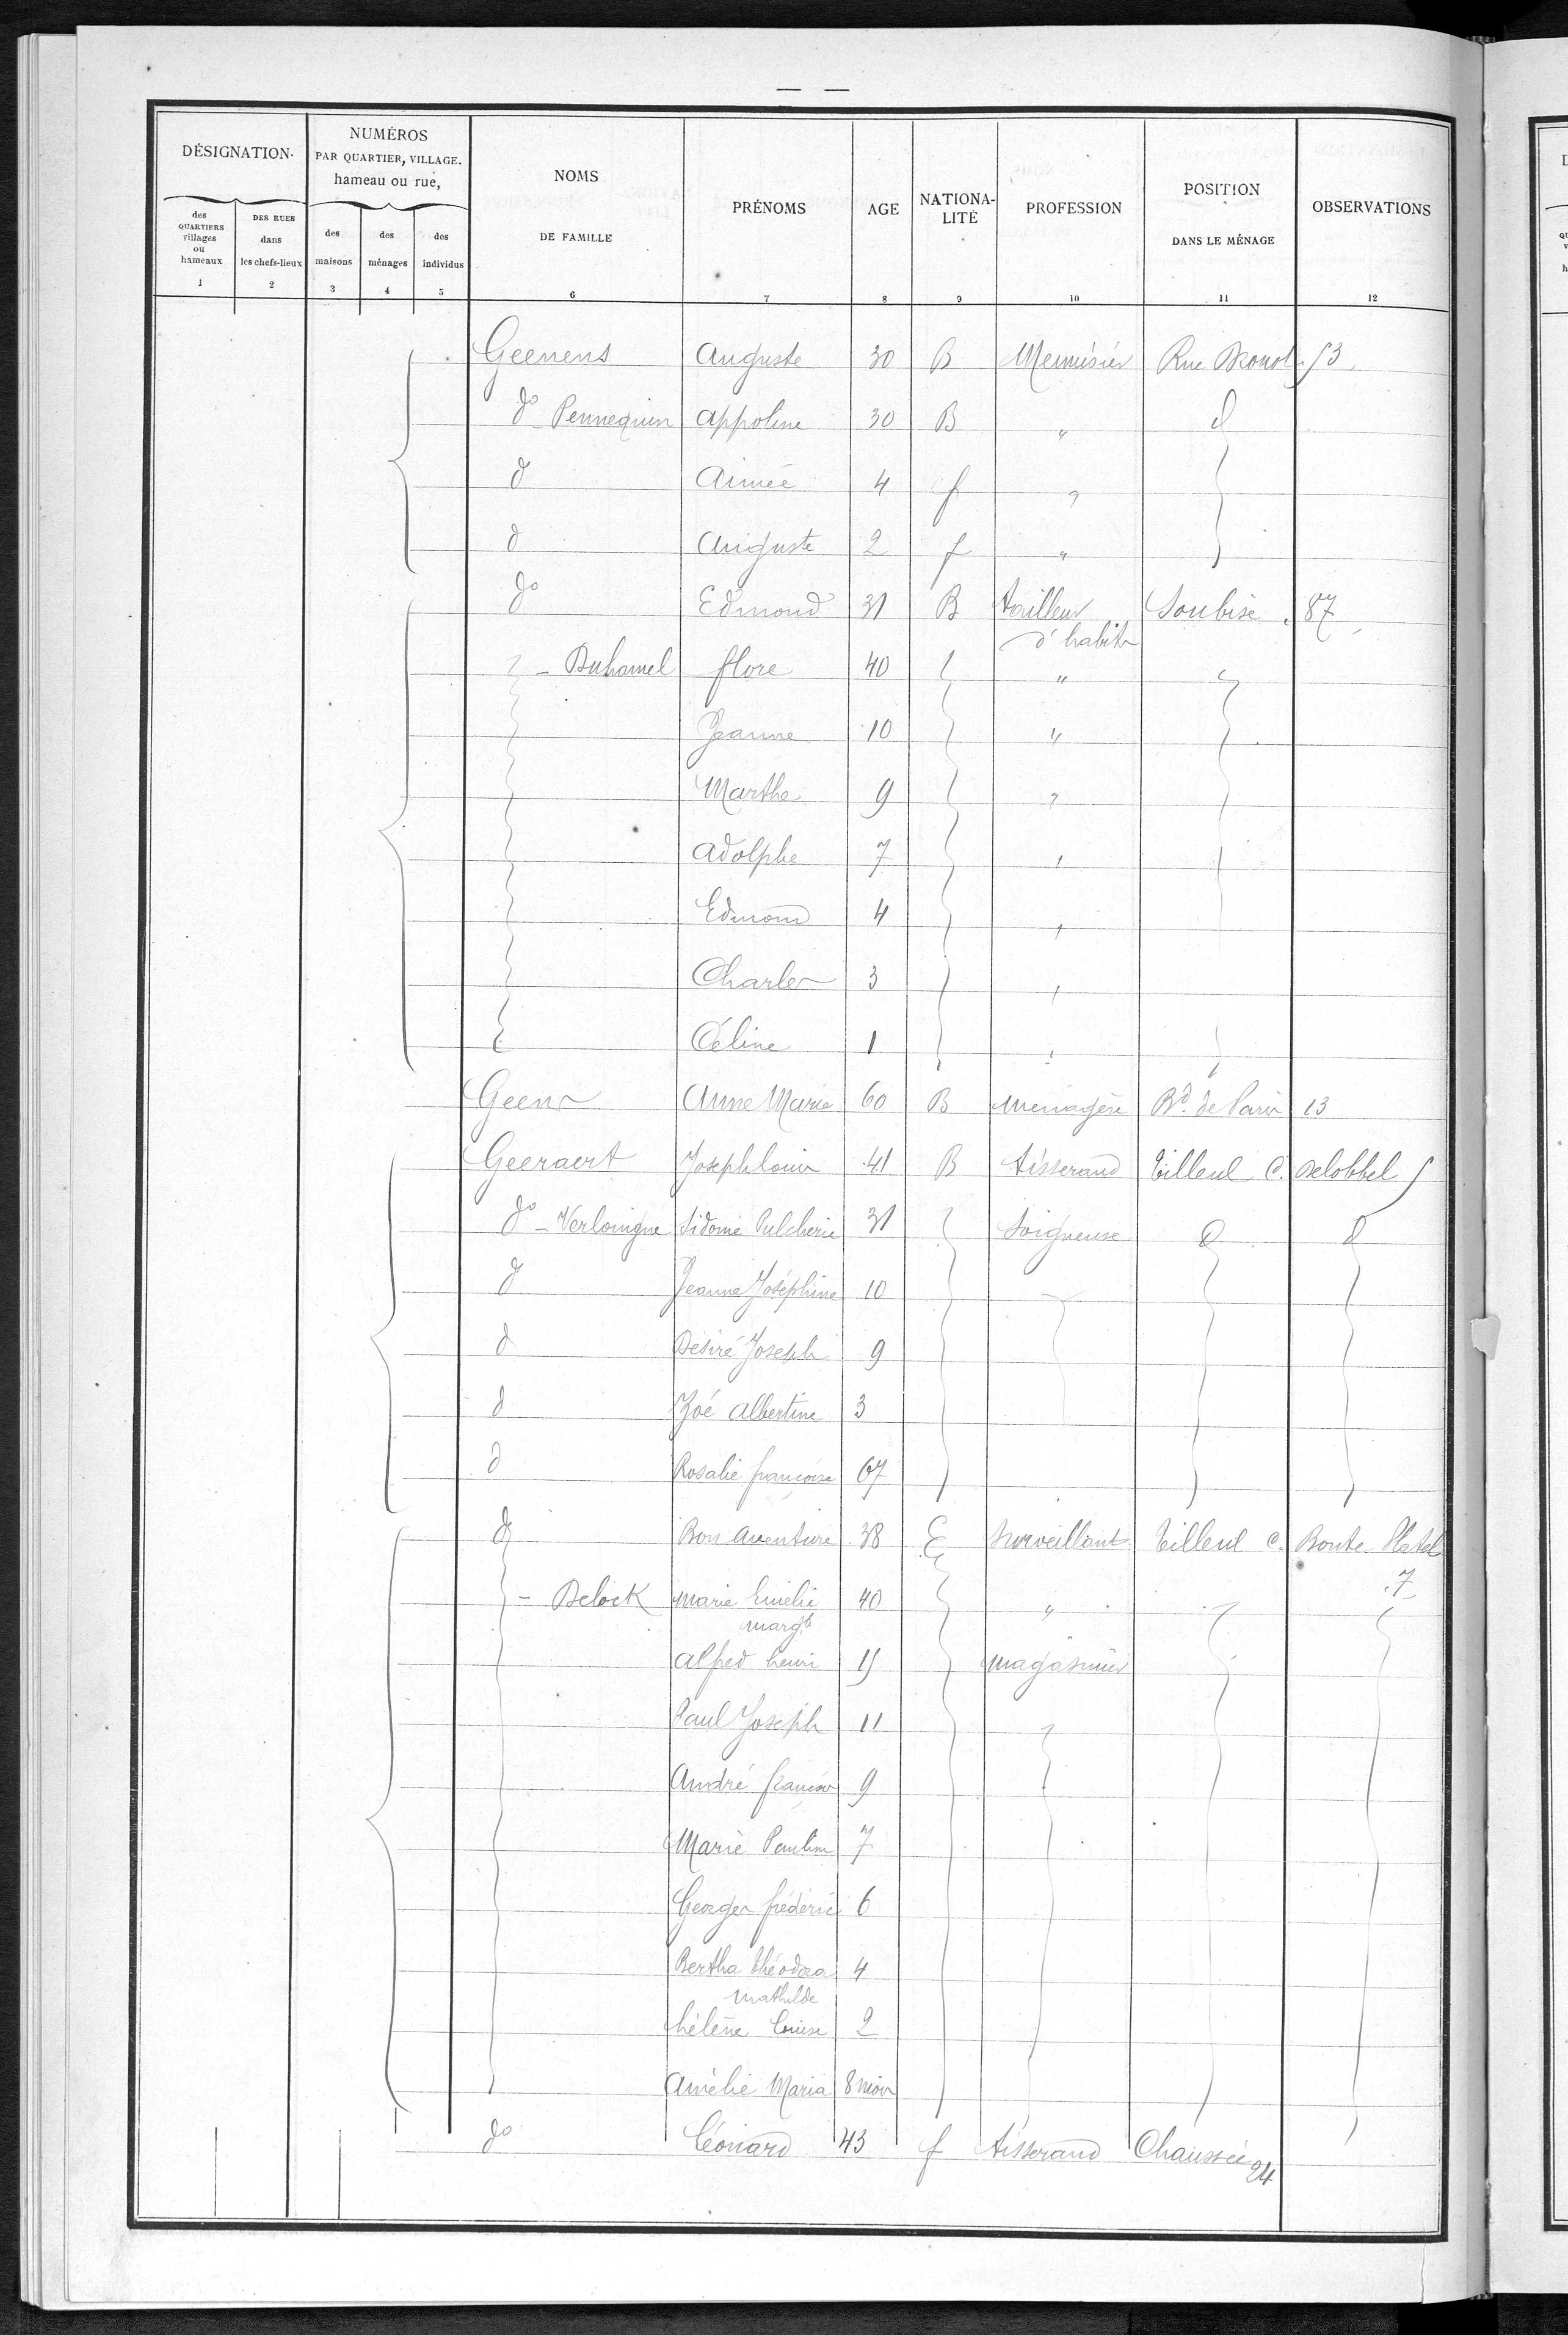 — —
DÉSIGNATION. NUMÉROS PAR QUARTIER, VILLAGE. hameau ou rue, NOMS DE FAMILLE PRÉNOMS AGE NATIONA-LITÉ PROFESSION POSITION DANS LE MÉNAGE OBSERVATIONS
des QUARTIERS villages ou hameaux DES RUES dans les chefs-lieux des maisons des ménages des individus
1 2 3 4 5 6 7 8 9 10 11 12
Geenens Auguste 30 B Menuisier Rue 53
do Pennequin Appoline 30 B " d
d Aimée 4 f "
d Auguste 2 f "
do Edmond 31 B tailleur Soubise 87
d'habits
- Duhamel flore 40 "
Jeanne 10 "
Marthe 9 "
Adolphe 7 "
Edmond 4 "
Charles 3 "
Céline 1 "
Geens Anne Marie 60 B menagère Bd. de Paris 13
Geeraert Joseph louis 41 B tisserand Tilleul C. Delobbel 5
do - Sidonie Pulcherie 31 Soigneuse d d
d Jeanne Joséphine 10
d Désiré Joseph 9
d Zoé Albertine 3
d Rosalie françoise 67
d Bon Aventure 38 surveillant Tilleul C. Bonte
7
- Delock marie Emélie 40 "
margte
alfred henri 15 magasinier
Paul Joseph 11
André françois 9
Marie Pauline 7
Georges frédéric 6
Bertha théodora 4
mathilde
hélène louise 2
Amélie Maria 8 mois
do Léonard 43 f tisserand Chaussée
24